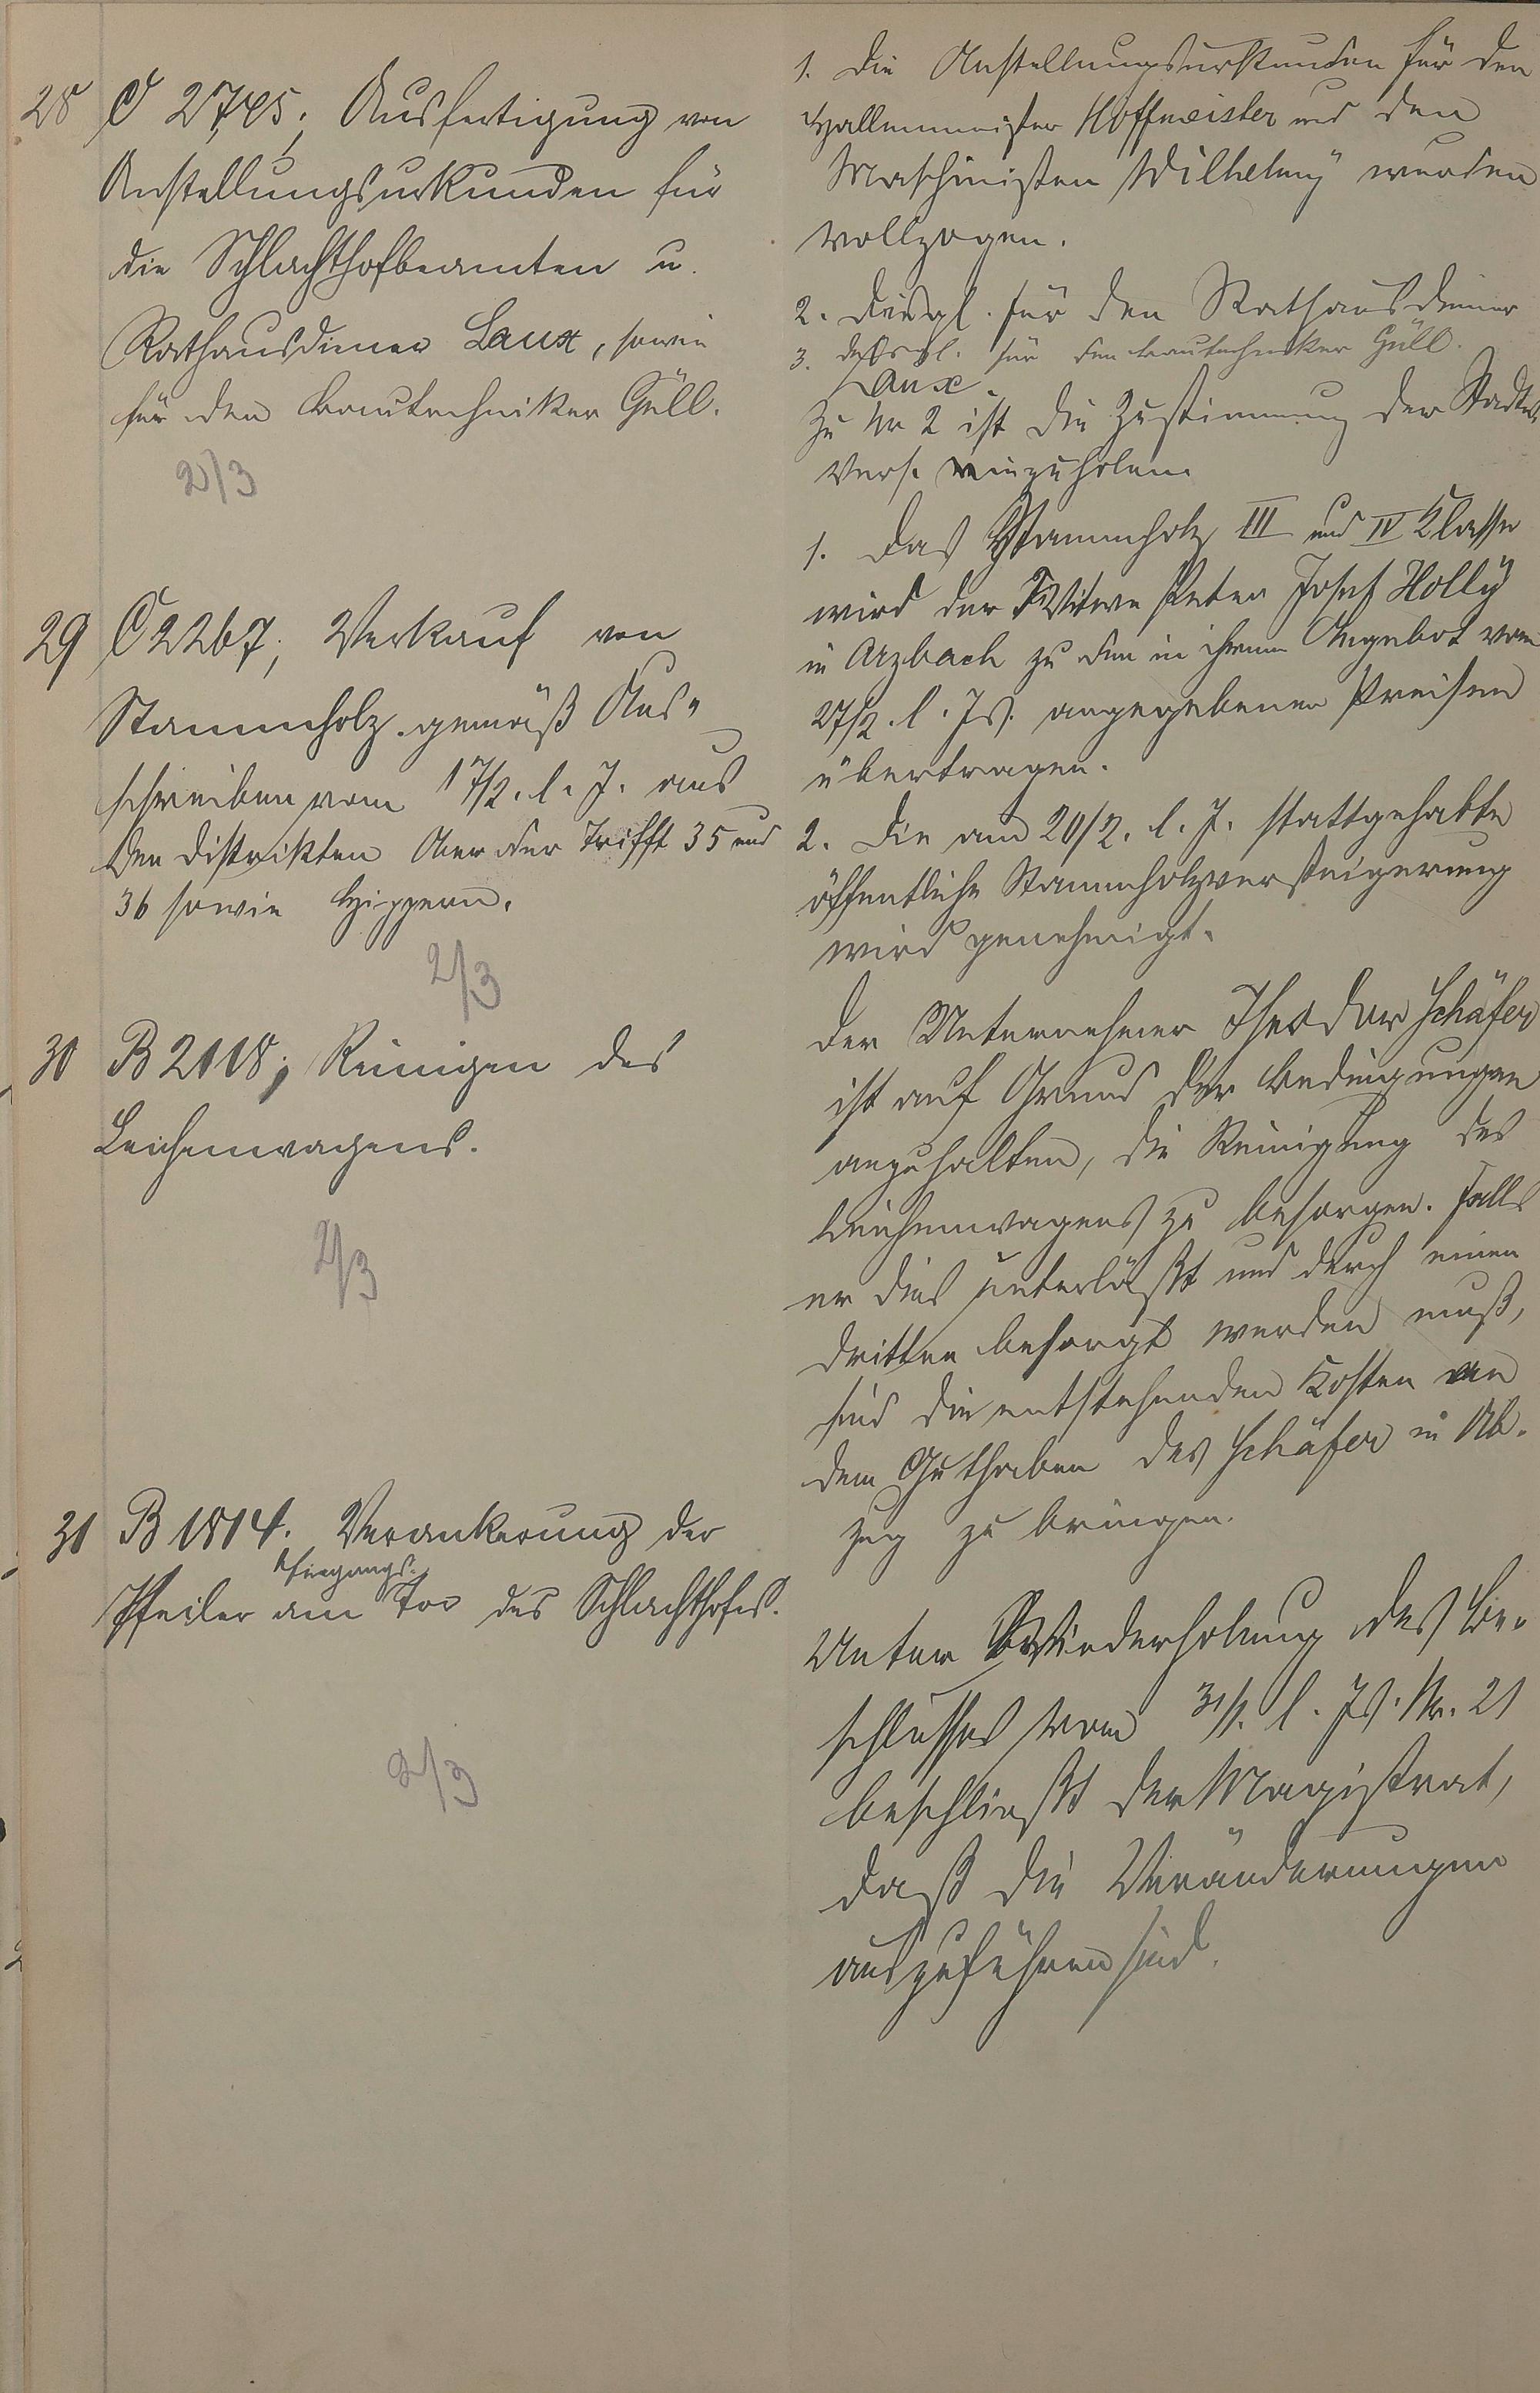 28 C 2745; Ausfertigung von
Anstellungsurkunden für
die Schlachthofbeamten u.
Rathausdiener Laux, sowie
für den Bautechniker Güll.
2/3
1. Die Anstellungsurkunden für den
Hallenmeister Hoffmeister und den
Maschinisten Wilhelmy wurden
vollzogen.
2. Desgl. für den Rathausdiener
Laux.
3. Desgl. für den Bautechniker Güll.
Zu Nr 2 ist die Zustimmung der Stadtv.
Vers. einzuholen.
29 C 2267; Verkauf von
Stammholz gemäß Aus-
schreiben vom 17/2. l. J. aus
den Distrikten An der Trifft 35 und
36 sowie Hippern.
2/3
1. Das Stammholz III und IV Klasse
wird der Witwe Peter Josef Holly
in Arzbach zu den in ihrem Angebot vom
27/2. l. Js. angegebenen Preisen
übertragen.
2. Die am 20/2. l. J. stattgehabte
öffentliche Stammholzversteigerung
wird genehmigt.
30 B 2118; Reinigen des
Leichenwagens.
2/3
Der Unternehmer Theodor Schäfer
ist auf Grund der Bedingungen
anzuhalten, die Reinigung des
Leichenwagens zu besorgen. Falls
er dies unterläßt und durch einen
Dritten besorgt werden muß,
sind die entstehenden Kosten an
dem Guthaben des Schäfer in Ab-
zug zu bringen.
31 B 1814. Verankerung der
Pfeiler am Eingangs-Tor des Schlachthofes.
2/3
Unter Wiederholung des Be-
schlusses vom 31/1. l. Js. Nr. 21
beschließt der Magistrat,
daß die Veränderungen
auszuführen sind.